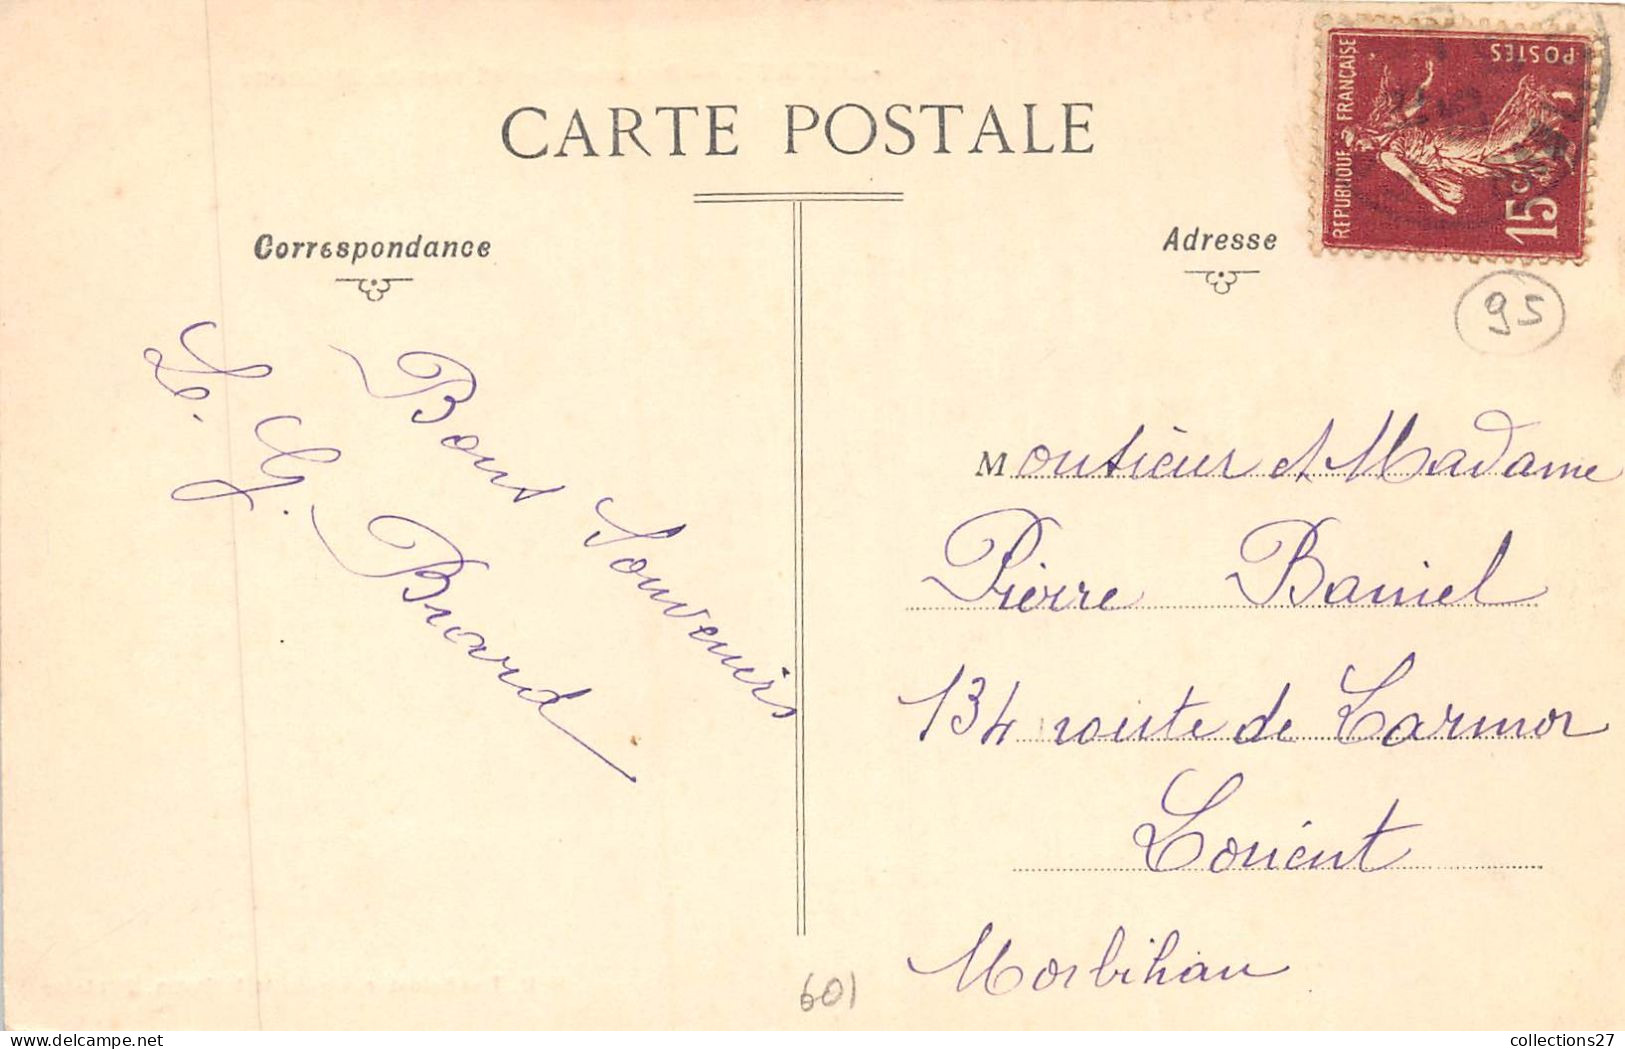 CARTE POSTALE
Correspondance
Adresse
REPUBLIQUE FRANÇAISE
POSTES
15c
95
Bons Souvenirs
L. G. Buard
Monsieur et Madame
Pierre Baniel
134 route de Larmor
Lorient
Morbihan
601
collections27